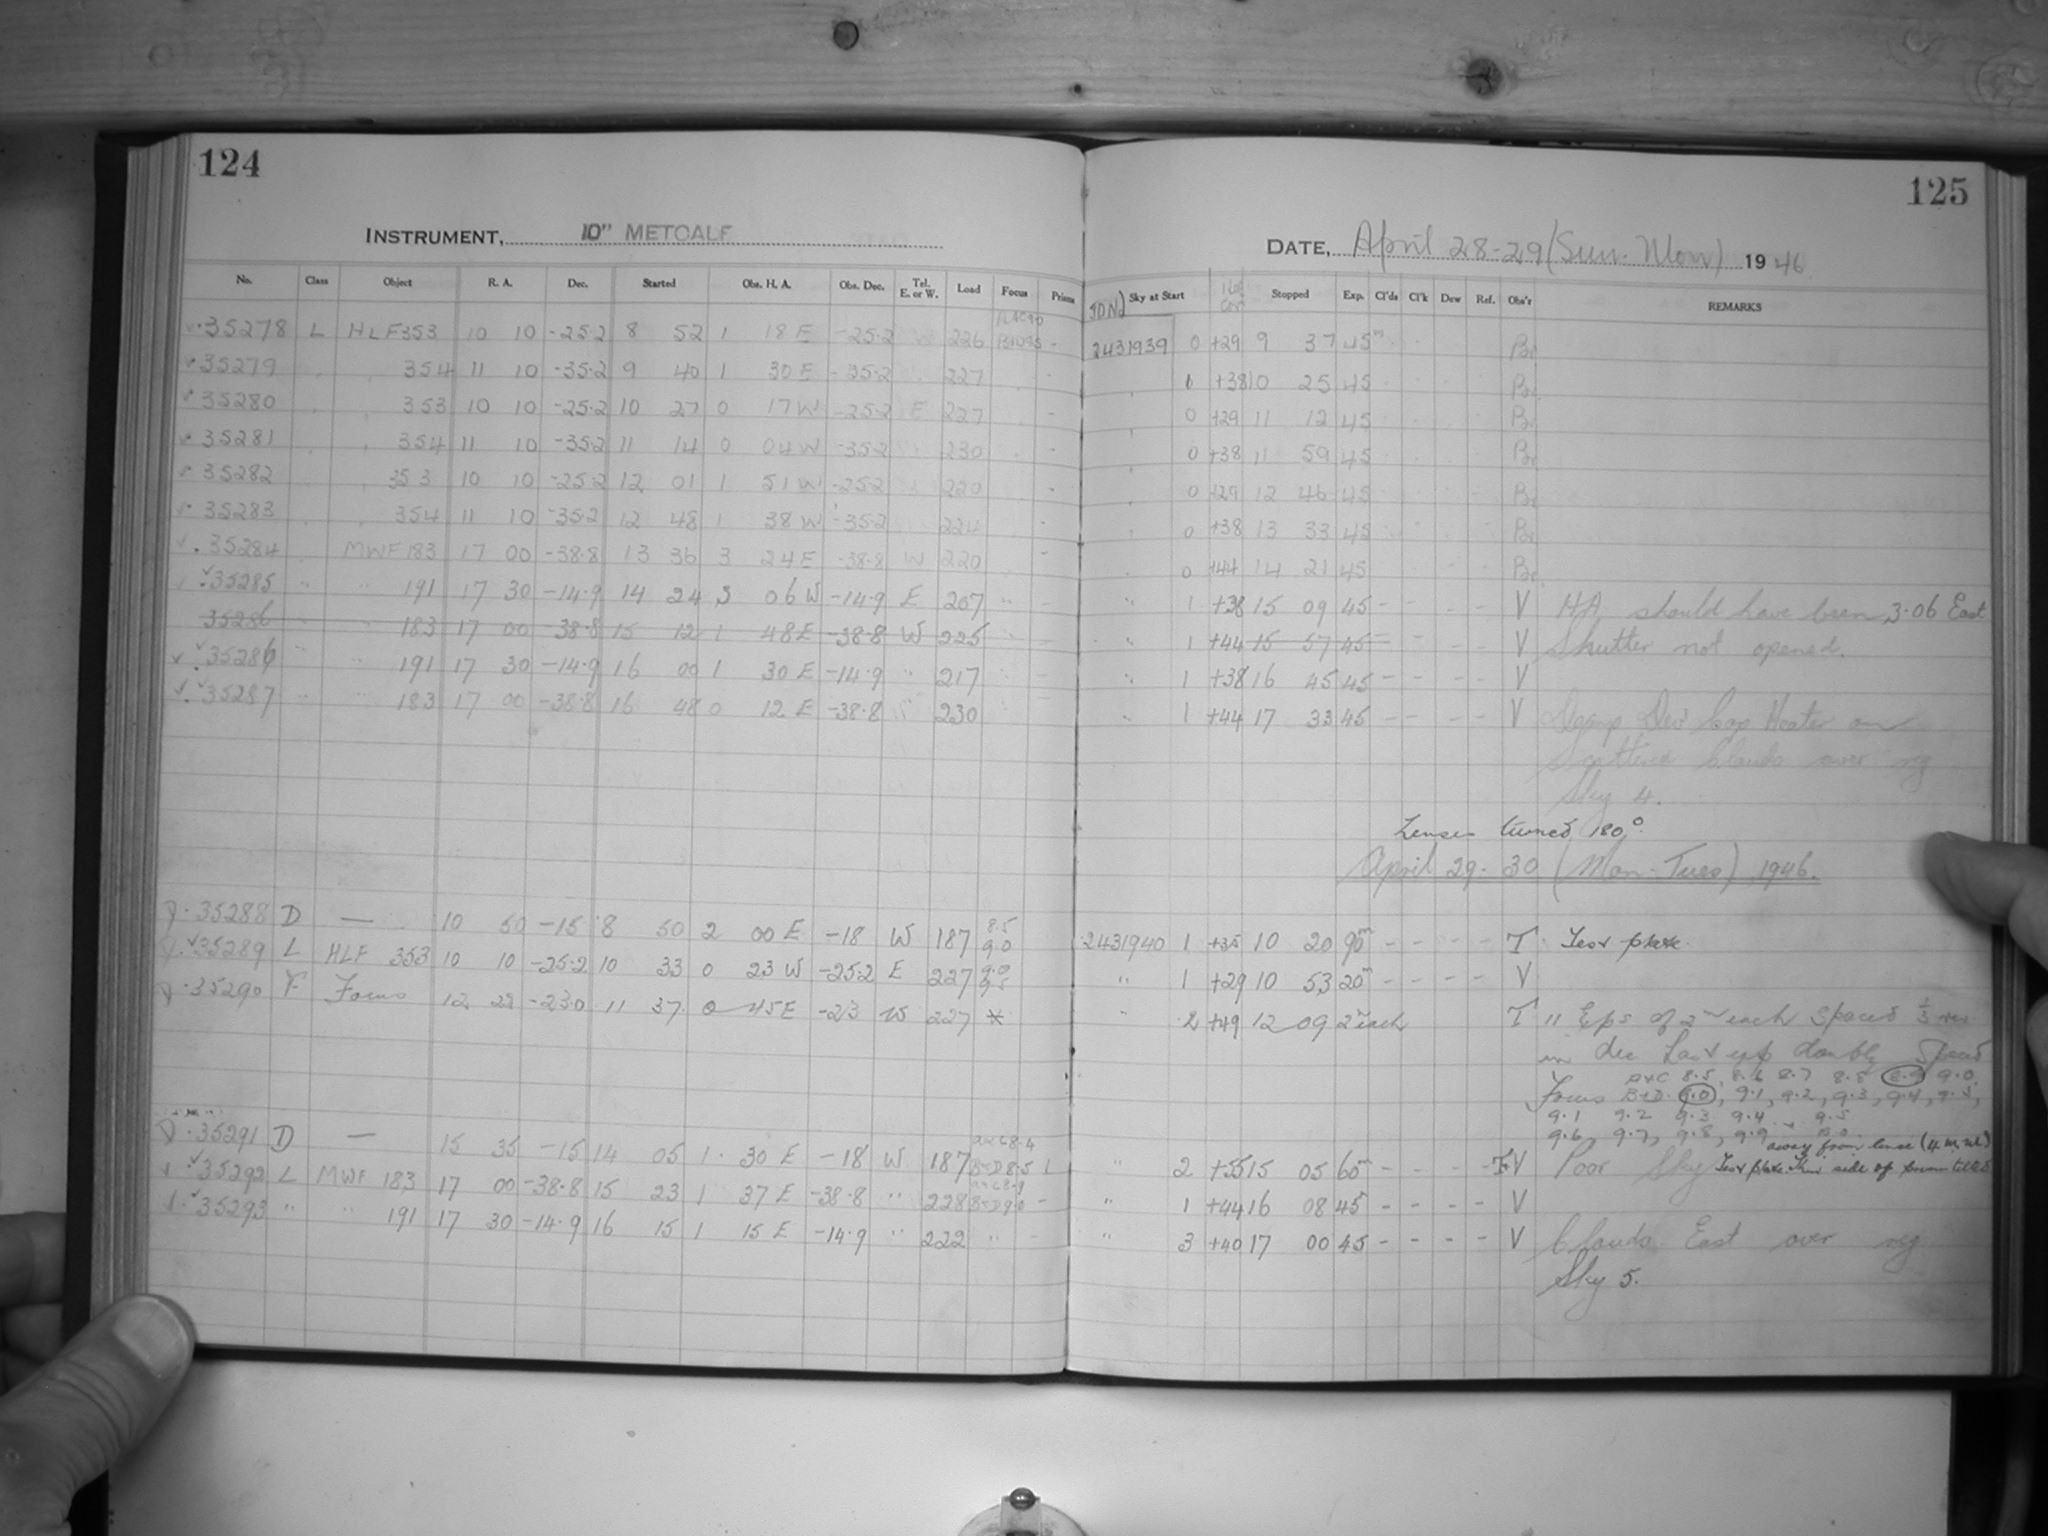 124
INSTRUMENT, 10" METCALF
No. Class Object R. A. Dec. Started Obs. H. A. Obs. Dec. Tel. E. or W. Load Focus Prisms
35278 L HLF 353 10 10 -25.2 8 52 1 18 E -25.2 W 226
35279 354 11 10 -35.2 9 40 1 30 E -35.2 227
35280 353 10 10 -25.2 10 27 0 17 W -25.2 E 227 -
35281 354 11 10 -35.2 11 14 0 04 W -35.2 230
35282 353 10 10 -25.2 12 01 1 51 W -25.2 220 -
35283 354 11 10 -35.2 12 48 1 38 W -35.2 224
35284 MWF 183 17 00 -38.8 13 36 3 24 E -38.8 W 220 -
35285 " " 191 17 30 -14.9 14 24 3 06 W -14.9 E 207 " -
35286 " 183 17 00 -38.8 15 12 1 48 E -38.8 W 225
35286 " " 191 17 30 -14.9 16 00 1 30 E -14.9 " 217
35287 " " 183 17 00 -38.8 16 48 0 12 E -38.8 " 230
35288 D — 10 50 -15 8 50 2 00 E -18 W 187 8.5 9.0
35289 L HLF 353 10 10 -25.2 10 33 0 23 W -25.2 E 227 9.0
35290 F Focus 12 22 -23.0 11 37 0 45 E -23 W 227 *
35291 D — 15 35 -15 14 05 1 30 E -18 W 187 A+C 8.4 B+D 8.5 L
35292 L MWF 183 17 00 -38.8 15 23 1 37 E -38.8 " 228 A+C 8.9 B+D 9.0 -
35293 " " 191 17 30 -14.9 16 15 1 15 E -14.9 " 222 " -
125
DATE, April 28-29 (Sun. Mon) 1946
JDN Sky at Start Stopped Exp. Cl'ds Cl'k Dew Ref. Obs'r REMARKS
2431939 0 +29 9 37 45m Br
0 +38 10 25 45 Br
0 +29 11 12 45 Br
0 +38 11 59 45 Br
0 +29 12 46 45 Br
0 +38 13 33 45 Br
0 +44 14 21 45 Br
" 1 +38 15 09 45 - - - - V HA should have been 3.06 East
" 1 +44 15 57 45 - - - V Shutter not opened.
" 1 +38 16 45 45 - - - - V
" 1 +44 17 33 45 - - - - V Damp Dew Cap Heater on
Scattered Clouds over
Sky 4.
Lenses turned 180°.
April 29-30 (Mon-Tues), 1946.
2431940 1 +35 10 20 90m - - - - T Test plate.
" 1 +29 10 53 20m - - - - V
" 2 +49 12 09 2m each T 11 Exps of 2m each Spaced 1/3 rev
in dec Last exp doubly Spaced
A+C 8.5, 8.6 8.7 8.8 8.9 9.0
Focus B+D. 9.0, 9.1, 9.2, 9.3, 9.4, 9.5,
9.1 9.2 9.3 9.4 9.5
9.6, 9.7, 9.8, 9.9, away from lense
" 2 +55 15 05 60m - - - - V Poor Sky Test plate. Thin side of prism tilted
" 1 +44 16 08 45 - - - - V
" 3 +40 17 00 45 - - - - V Clouds East over
Sky 5.